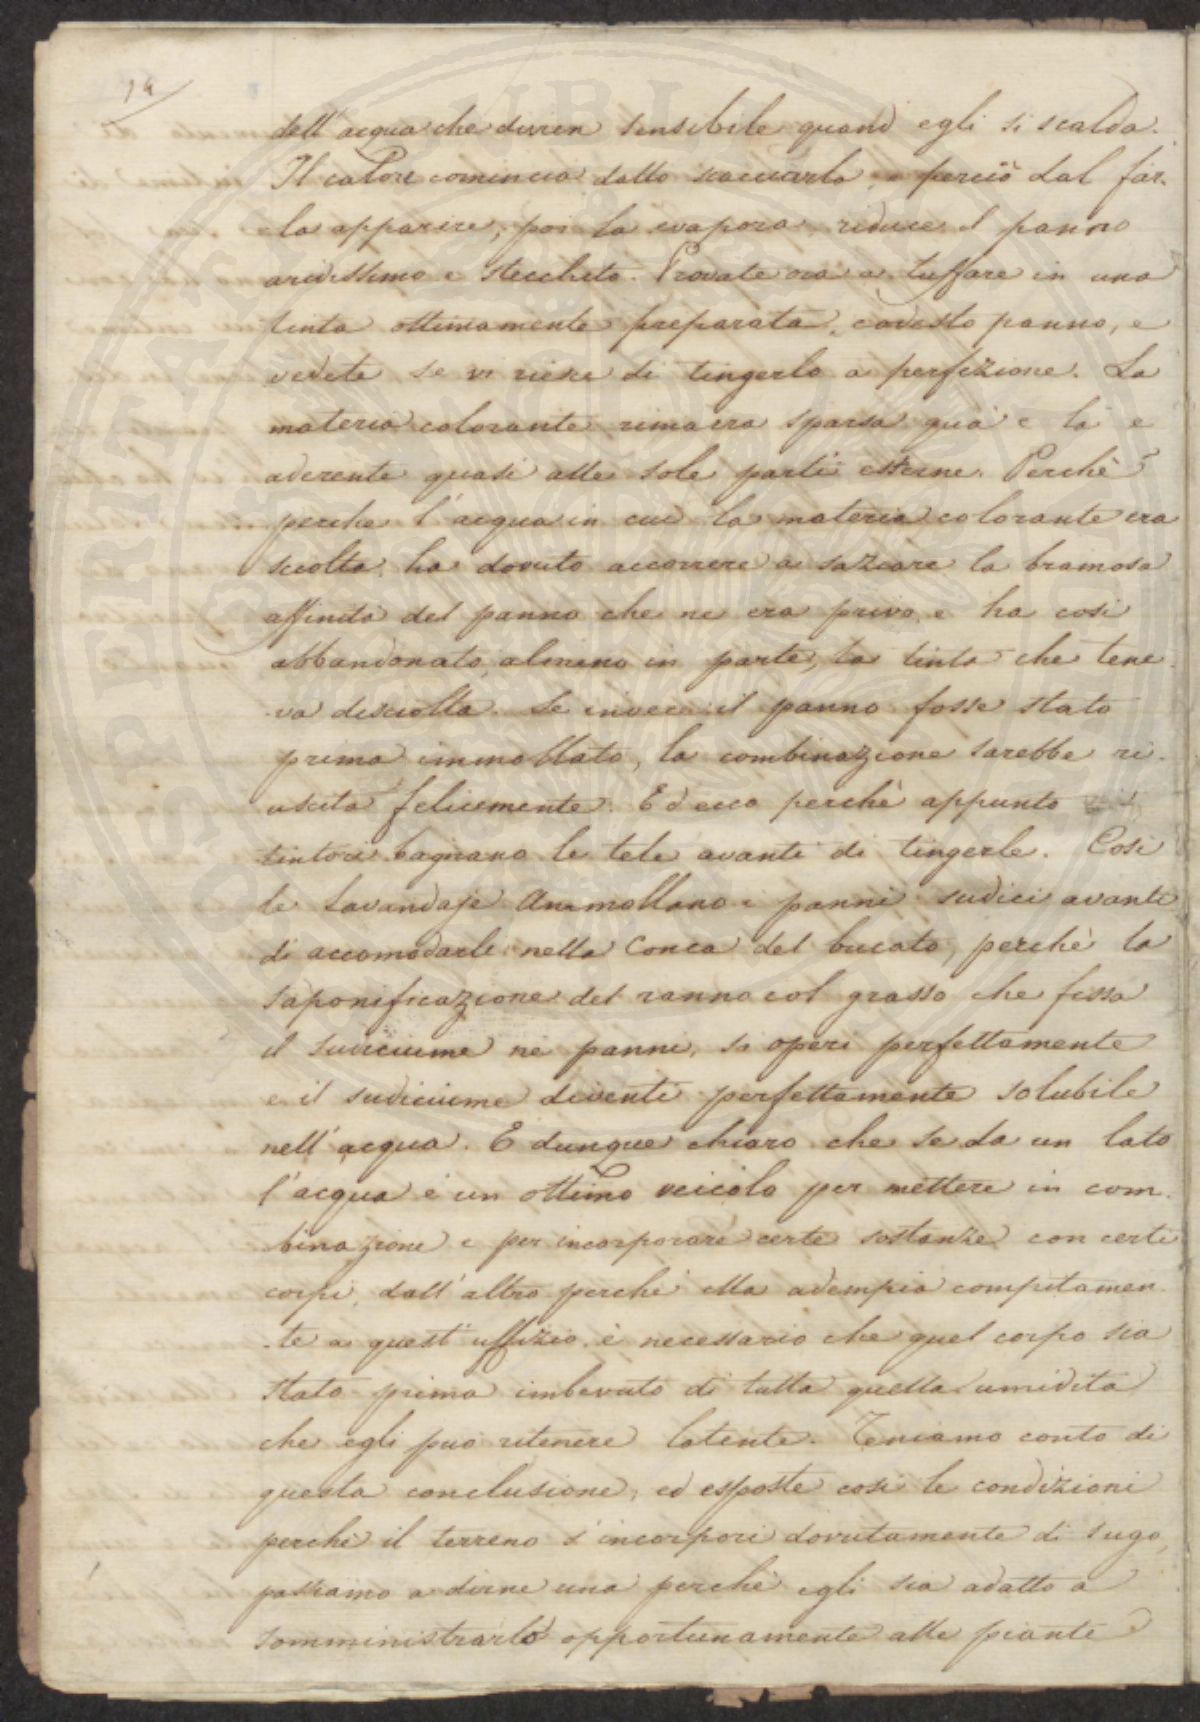 14
dell'acqua che divien sensibile quand egli si scalda.
Il calore comincia dallo scacciarla, e perciò dal far-
la apparire; poi la evapora, riduce il panno
aridissimo e stecchito. Provate ora a tuffare in una
tinta ottimamente preparata, codesto panno, e
vedete se vi riesce di tingerlo a perfezione. La
materia colorante rimarra sparsa quà e là e
aderente quasi alle sole parti esterne. Perchè?
perche l'acqua in cui la materia colorante era
sciolta, ha dovuto accorrere a saziare la bramosa
affinità del panno che ne era privo, e ha così
abbandonato, almeno in parte, la tinta che tene
-va disciolta. Se invece il panno fosse stato
prima immollato, la combinazione sarebbe ri-
uscita felicemente. Ed ecco perchè appunto i
tintori bagnano le tele avanti di tingerle. Così
le Lavandaje ammollano i panni sudici avanti
di accomodarli nella Conca del bucato, perchè la
saponificazione del ranno col grasso che fissa
il sudiciume ne panni, si operi perfettamente
e il sudiciume diventi perfettamente solubile
nell'acqua. E dunque chiaro che se da un lato
l'acqua è un ottimo veicolo per mettere in com-
binazione e per incorporare certe sostanze con certi
corpi, dall'altro perchè ella adempia compitamen-
-te a quest'uffizio è necessario che quel corpo sia
stato prima imbevuto di tutta quella umidità
che egli può ritenere latente. Teniamo conto di
questa conclusione, ed esposte così le condizioni
perchè il terreno s'incorpori dovutamente di sugo,
passiamo a dirne una perchè egli sia adatto a
somministrarlo opportunamente alle piante